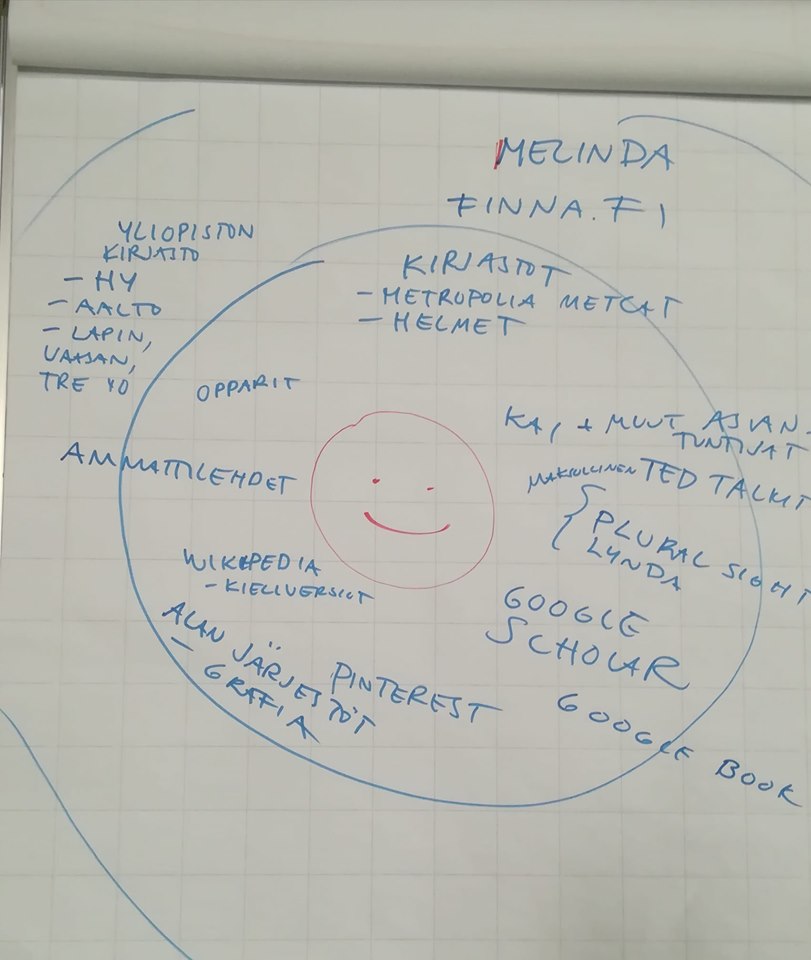 MELINDA
FINNA.FI
YLIOPISTON
KIRJASTO
- HY
- AALTO
- LAPIN,
VAASAN,
TRE YO
KIRJASTOT
- METROPOLIA METCAT
- HELMET
OPPARIT
AMMATTILEHDET
KAI + MUUT ASIAN-
TUNTIJAT
MAKSULLINEN TED TALKIT
PLURAL SIGHT
LYNDA
WIKIPEDIA
- KIELIVERSIOT
GOOGLE
SCHOLAR
ALAN JÄRJESTÖT
- GRAFIA
PINTEREST
GOOGLE BOOK